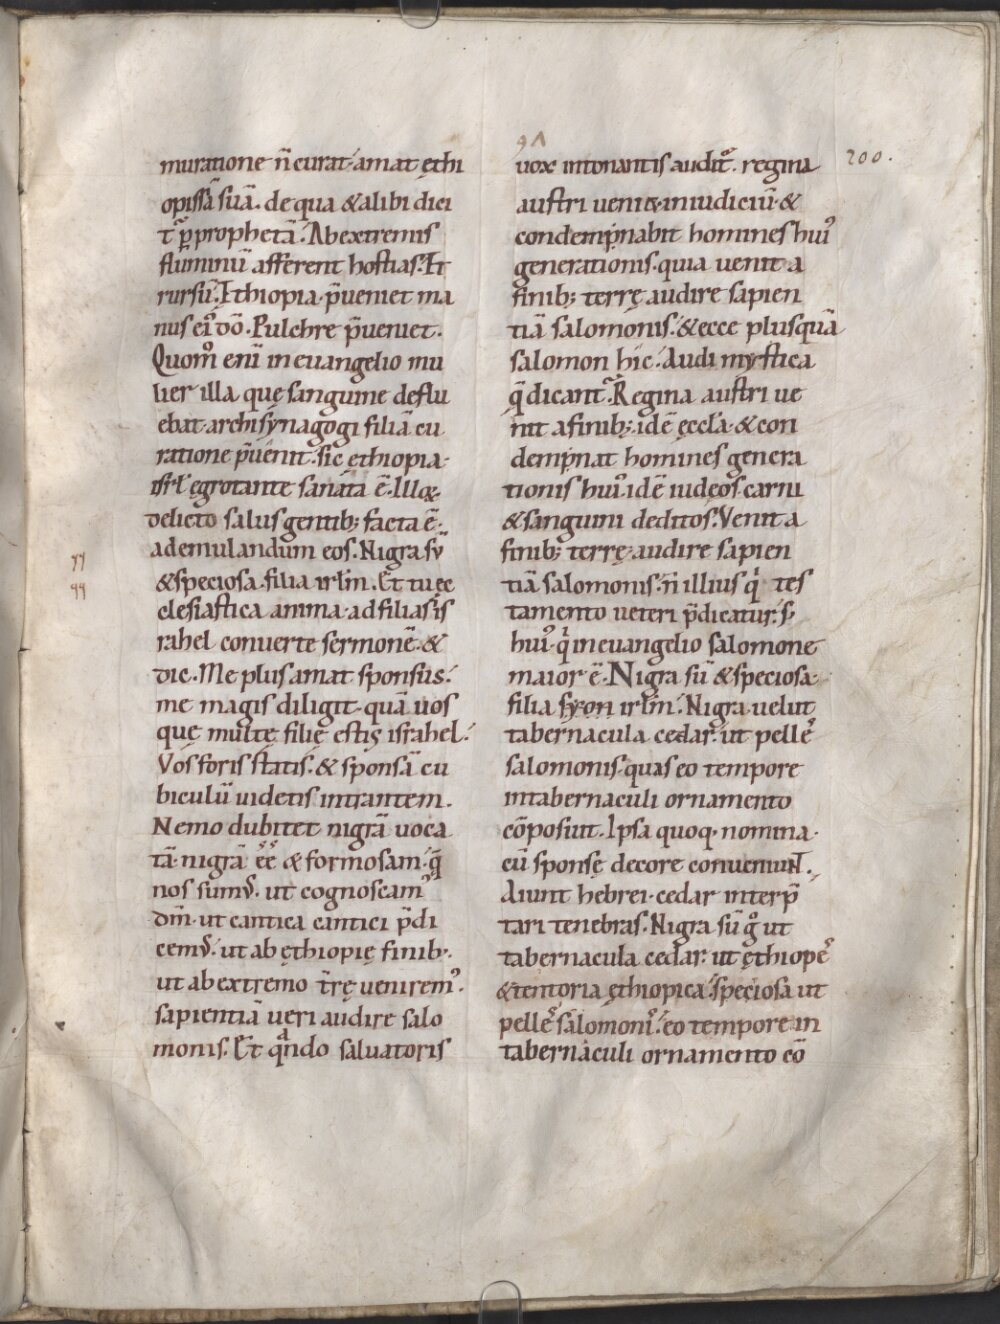 muratione n̄ curat· amat ęthi
opissā suā. de qua & alibi dici
t᷒ p̱ prophetā. Ab extremis
fluminū afferent hostias. Et
rursū. Ethiopia· p̄ueniet ma
nus ei᷒ dō. Pulchre p̄ueniet.
Quom̊ enī in euangelio mu
lier illa quę sanguine deflu
ebat· archisynagogi filiā cu
ratione p̄uenit. sic ęthiopia·
isrl̄ ęgrotante sanata ē. Illoꝝ
delicto salus gentib; facta ē.
ad emulandum eos. Nigra sū
& speciosa· filia irlm̄. Et tu ęc
clesiastica anima· ad filias is
rahel conuerte sermonē· &
dic. Me plus amat sponsus.
me magis diligit· quā uos
quę multę filię estis israhel.
Vos foris statis· & sponsā cu
biculū uidetis intrantem.
Nemo dubitet nigrā uoca
tā· nigrā ēē & formosam· q̄
nos sum᷒. ut cognoscam᷒
dm̄· ut cantica cantici p̄di
cem᷒. ut ab ęthiopię finib·
ut ab extremo t̄rę uenirem᷒.
sapientiā ueri audire salo
monis. Et qͣndo saluatoris
200.
uox intonantis audit᷒. regina
austri ueniet in iudiciū· &
condemp̄nabit homines hui᷒
generationis· quia uenit a
finib; terrę audire sapien
tiā salomonis. & ecce plus quā
salomon hic. Audi mystica
q̄ dicant᷒. Regina austri ue
nit a finib; idē ęccla· & con
demp̄nat homines genera
tionis hui᷒· idē iudęos carni
& sanguini deditos. Venit a
finib; terrę· audire sapien
tiā salomonis· n̄ illius qͥ tes
tamento ueteri p̄dicatur. s;
hui᷒· qͥ in euangelio salomone
maior ē. Nigra sū & speciosa·
filia syon irlm̄. Nigra uelut
tabernacula cedar. ut pelles
salomonis· quas eo tempore
in tabernaculi ornamento
cōposuit. Ipsa quoq· nomina·
cū sponsę decore conueniunt.
Aiunt hebrei· cedar interp̄
tari tenebras. Nigra sū g̊ ut
tabernacula cedar. ut ęthiopes
& tentoria ęthiopica. speciosa ut
pelles salomonis. eo tempore in
tabernaculi ornamento cō